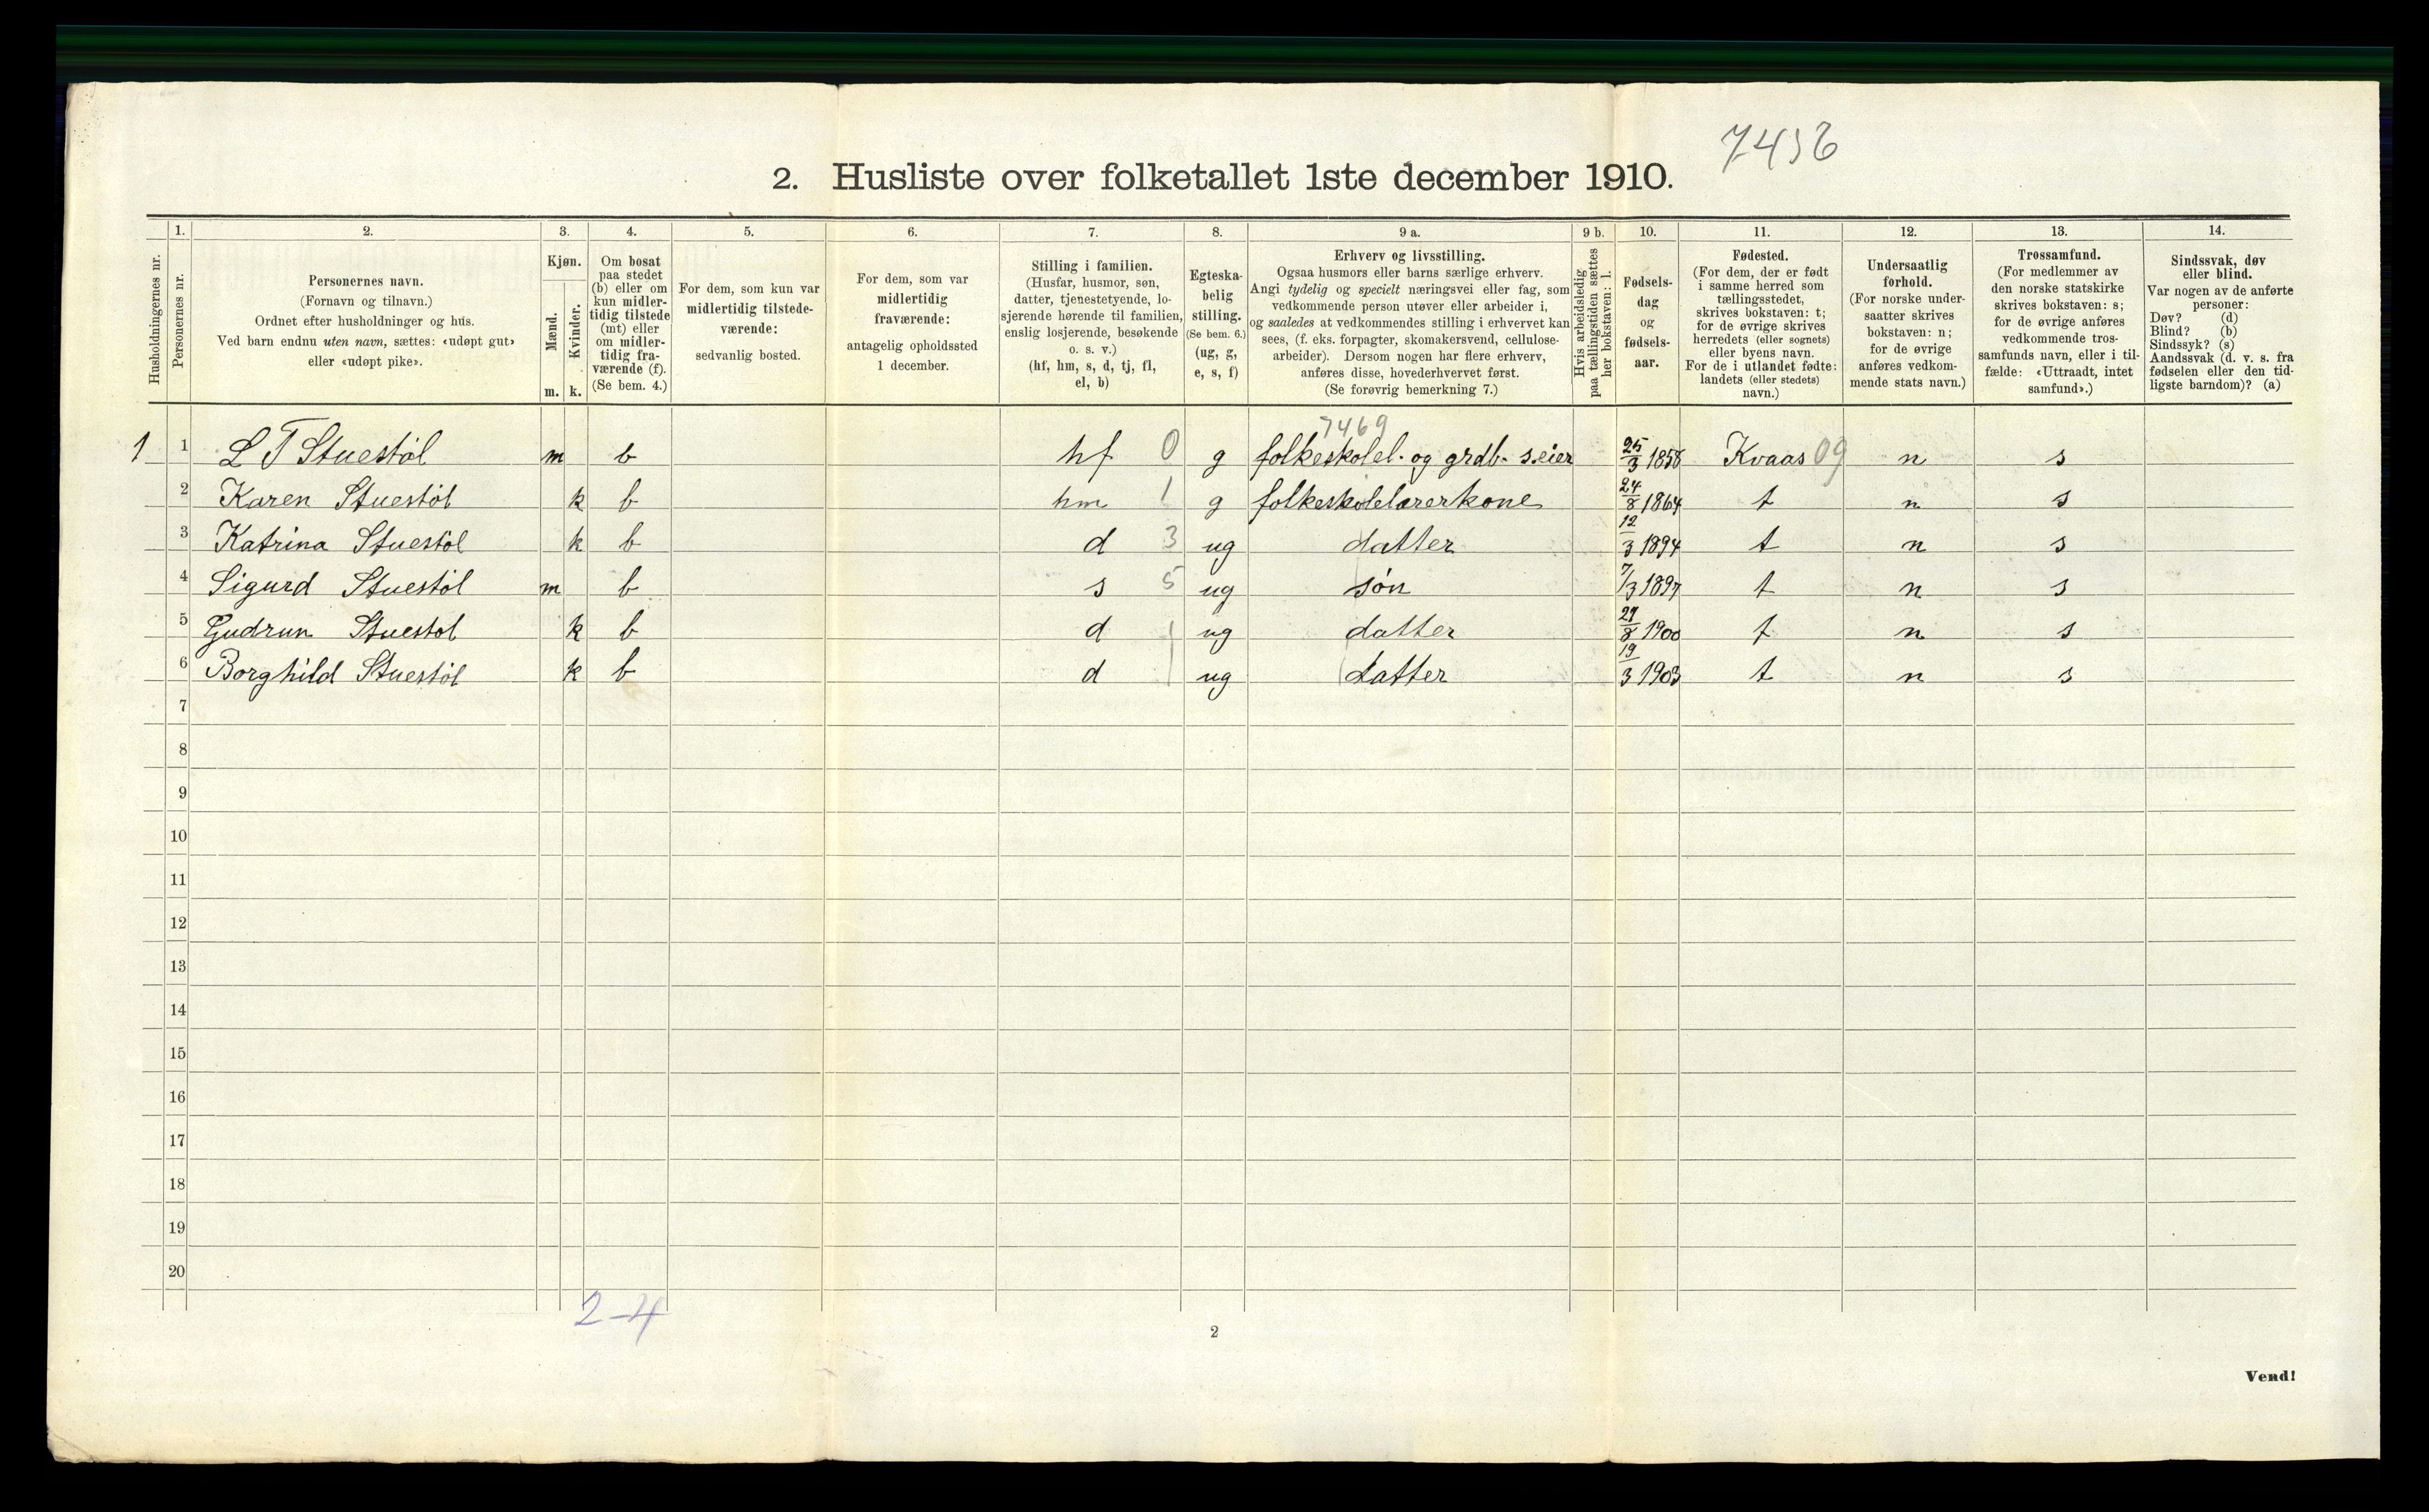 7456
2. Husliste over folketallet 1ste december 1910.
Husholdningernes nr.
1.
Personernes nr.
2.
Personernes navn.
(Fornavn og tilnavn.)
Ordnet efter husholdninger og hus.
Ved barn endnu uten navn, sættes: «udøpt gut»
eller «udøpt pike».
3.
Kjøn.
Mænd.
Kvinder.
m. k.
4.
Om bosat
paa stedet
(b) eller om
kun midler-
tidig tilstede
(mt) eller
om midler-
tidig fra-
værende (f).
(Se bem. 4.)
5.
For dem, som kun var
midlertidig tilstede-
værende:
sedvanlig bosted.
6.
For dem, som var
midlertidig
fraværende:
antagelig opholdssted
1 december.
7.
Stilling i familien.
(Husfar, husmor, søn,
datter, tjenestetyende, lo-
sjerende hørende til familien,
enslig losjerende, besøkende
o. s. v.)
(hf, hm, s, d, tj, fl,
el, b)
8.
Egteska-
belig
stilling.
(Se bem. 6.)
(ug, g,
e, s, f)
9 a.
Erhverv og livsstilling.
Ogsaa husmors eller barns særlige erhverv.
Angi tydelig og specielt næringsvei eller fag, som
vedkommende person utøver eller arbeider i,
og saaledes at vedkommendes stilling i erhvervet kan
sees, (f. eks. forpagter, skomakersvend, cellulose-
arbeider). Dersom nogen har flere erhverv,
anføres disse, hovederhvervet først.
(Se forøvrig bemerkning 7.)
9 b.
Hvis arbeidsledig
paa tællingstiden sættes
her bokstaven: l.
10.
Fødsels-
dag
og
fødsels-
aar.
11.
Fødested.
(For dem, der er født
i samme herred som
tællingsstedet,
skrives bokstaven: t;
for de øvrige skrives
herredets (eller sognets)
eller byens navn.
For de i utlandet fødte:
landets (eller stedets)
navn.)
12.
Undersaatlig
forhold.
(For norske under-
saatter skrives
bokstaven: n;
for de øvrige
anføres vedkom-
mende stats navn.)
13.
Trossamfund.
(For medlemmer av
den norske statskirke
skrives bokstaven: s;
for de øvrige anføres
vedkommende tros-
samfunds navn, eller i til-
fælde: «Uttraadt, intet
samfund».)
14.
Sindssvak, døv
eller blind.
Var nogen av de anførte
personer:
Døv? (d)
Blind? (b)
Sindssyk? (s)
Aandssvak (d. v. s. fra
fødselen eller den tid-
ligste barndom)? (a)
7469
1 1 L T Stuestøl m b hf 0 g folkeskolel. og grdb. seier 25/3 1858 Kvaas 09 n s
2 Karen Stuestøl k b hm 1 g folkeskolelærerkone 24/8 1864 t n s
3 Katrina Stuestøl k b d 3 ug datter 12/3 1894 t n s
4 Sigurd Stuestøl m b s 5 ug søn 7/3 1897 t n s
5 Gudrun Stuestøl k b d ug datter 27/8 1900 t n s
6 Borghild Stuestøl k b d ug datter 19/3 1903 t n s
7
8
9
10
11
12
13
14
15
16
17
18
19
20
2-4
2
Vend!